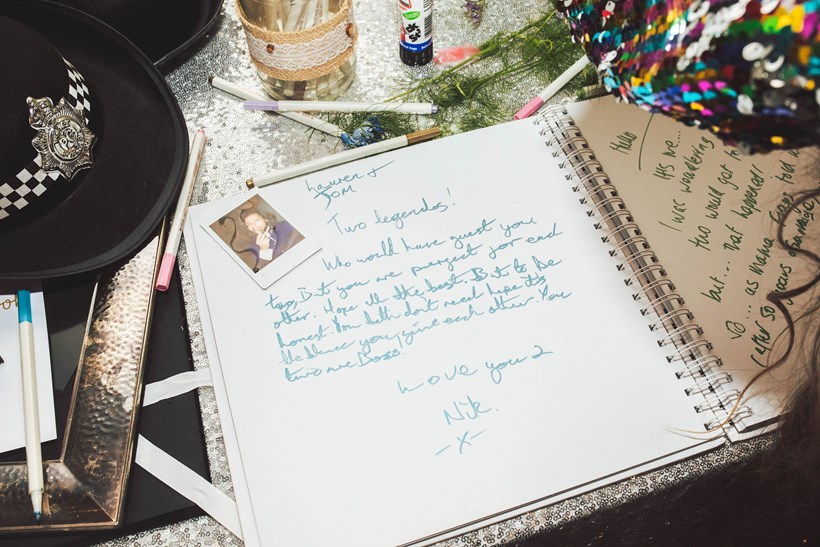 Lauren +
Dom
Two legends!
Who would have guest you
two. But you are purfect for each
other. Hope all the best. But to be
honest. You both dont need hope its
the you give each other. You
two are Boss!
Love you 2
Nik.
-x-
Hello
Its me...
I was wondering
two would get to
but... that happened!
... as mama told
(after so